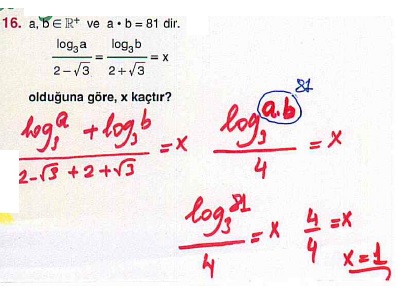 16. a, b ∈ ℝ⁺ ve a • b = 81 dir.
log₃a / (2 − √3) = log₃b / (2 + √3) = x
olduğuna göre, x kaçtır?
(log₃a + log₃b) / (2 − √3 + 2 + √3) = x
81
log₃(a.b) / 4 = x
log₃81 / 4 = x
4/4 = x
x = 1